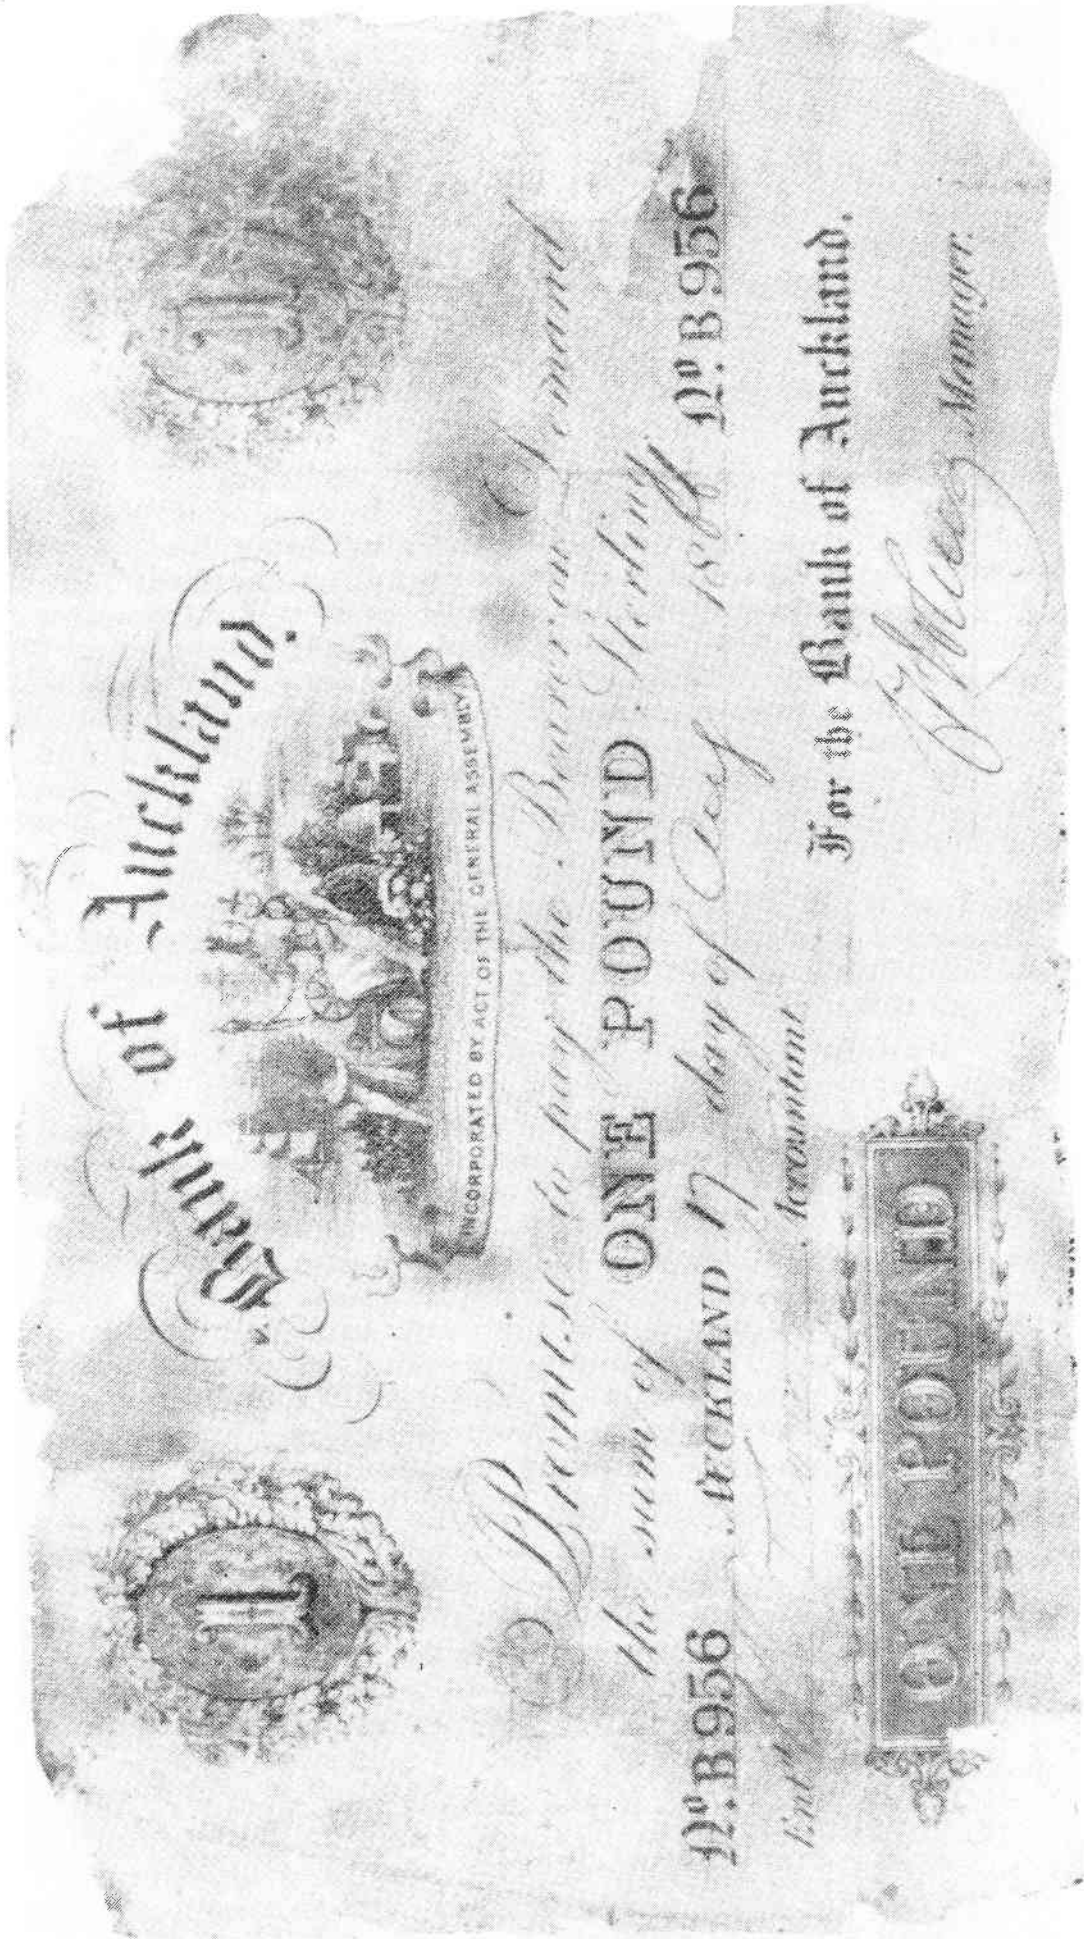 I I
Bank of Auckland.
INCORPORATED BY ACT OF THE GENERAL ASSEMBLY
I Promise to pay the Bearer on Demand
the sum of ONE POUND Sterling
No. B 956 AUCKLAND 17 day of Aug No. B 956
Entd Accountant
For the Bank of Auckland,
ONE POUND
Manager.